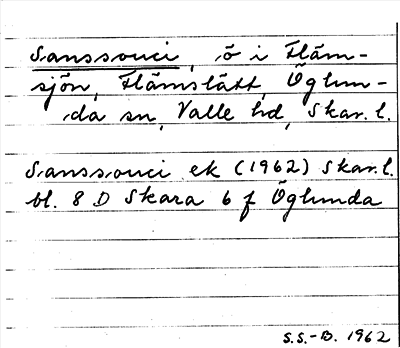 Sanssouci, ö i Fläm-
sjön, Flämslätt, Öglun-
da sn, Valle hd, Skar. l.
Sanssouci ek (1962) Skar. l.
bl. 8 D Skara 6 f Öglunda
S.S.-B. 1962